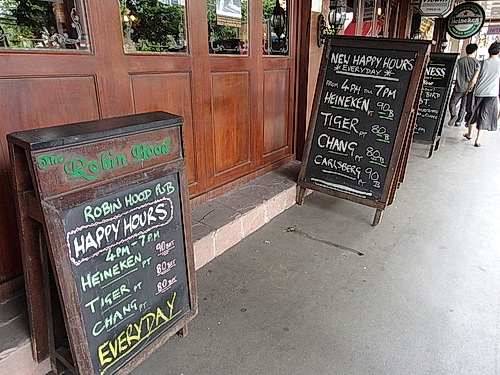 The Robin Hood
ROBIN HOOD PUB
HAPPY HOURS
4PM - 7PM
HEINEKEN PT 90 BHT
TIGER PT 80 BHT
CHANG PT 80 BHT
EVERYDAY
NEW HAPPY HOURS
*EVERYDAY*
FROM 4PM TILL 7PM
HEINEKEN PT 90
TIGER PT 80
CHANG PT 80
CARLSBERG PT 90
NESS
BIRD
Heineken